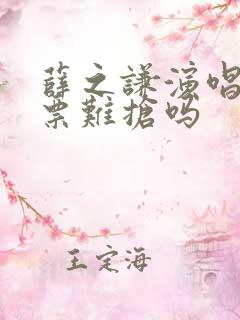 薛之謙演唱
票難搶吗
王定海